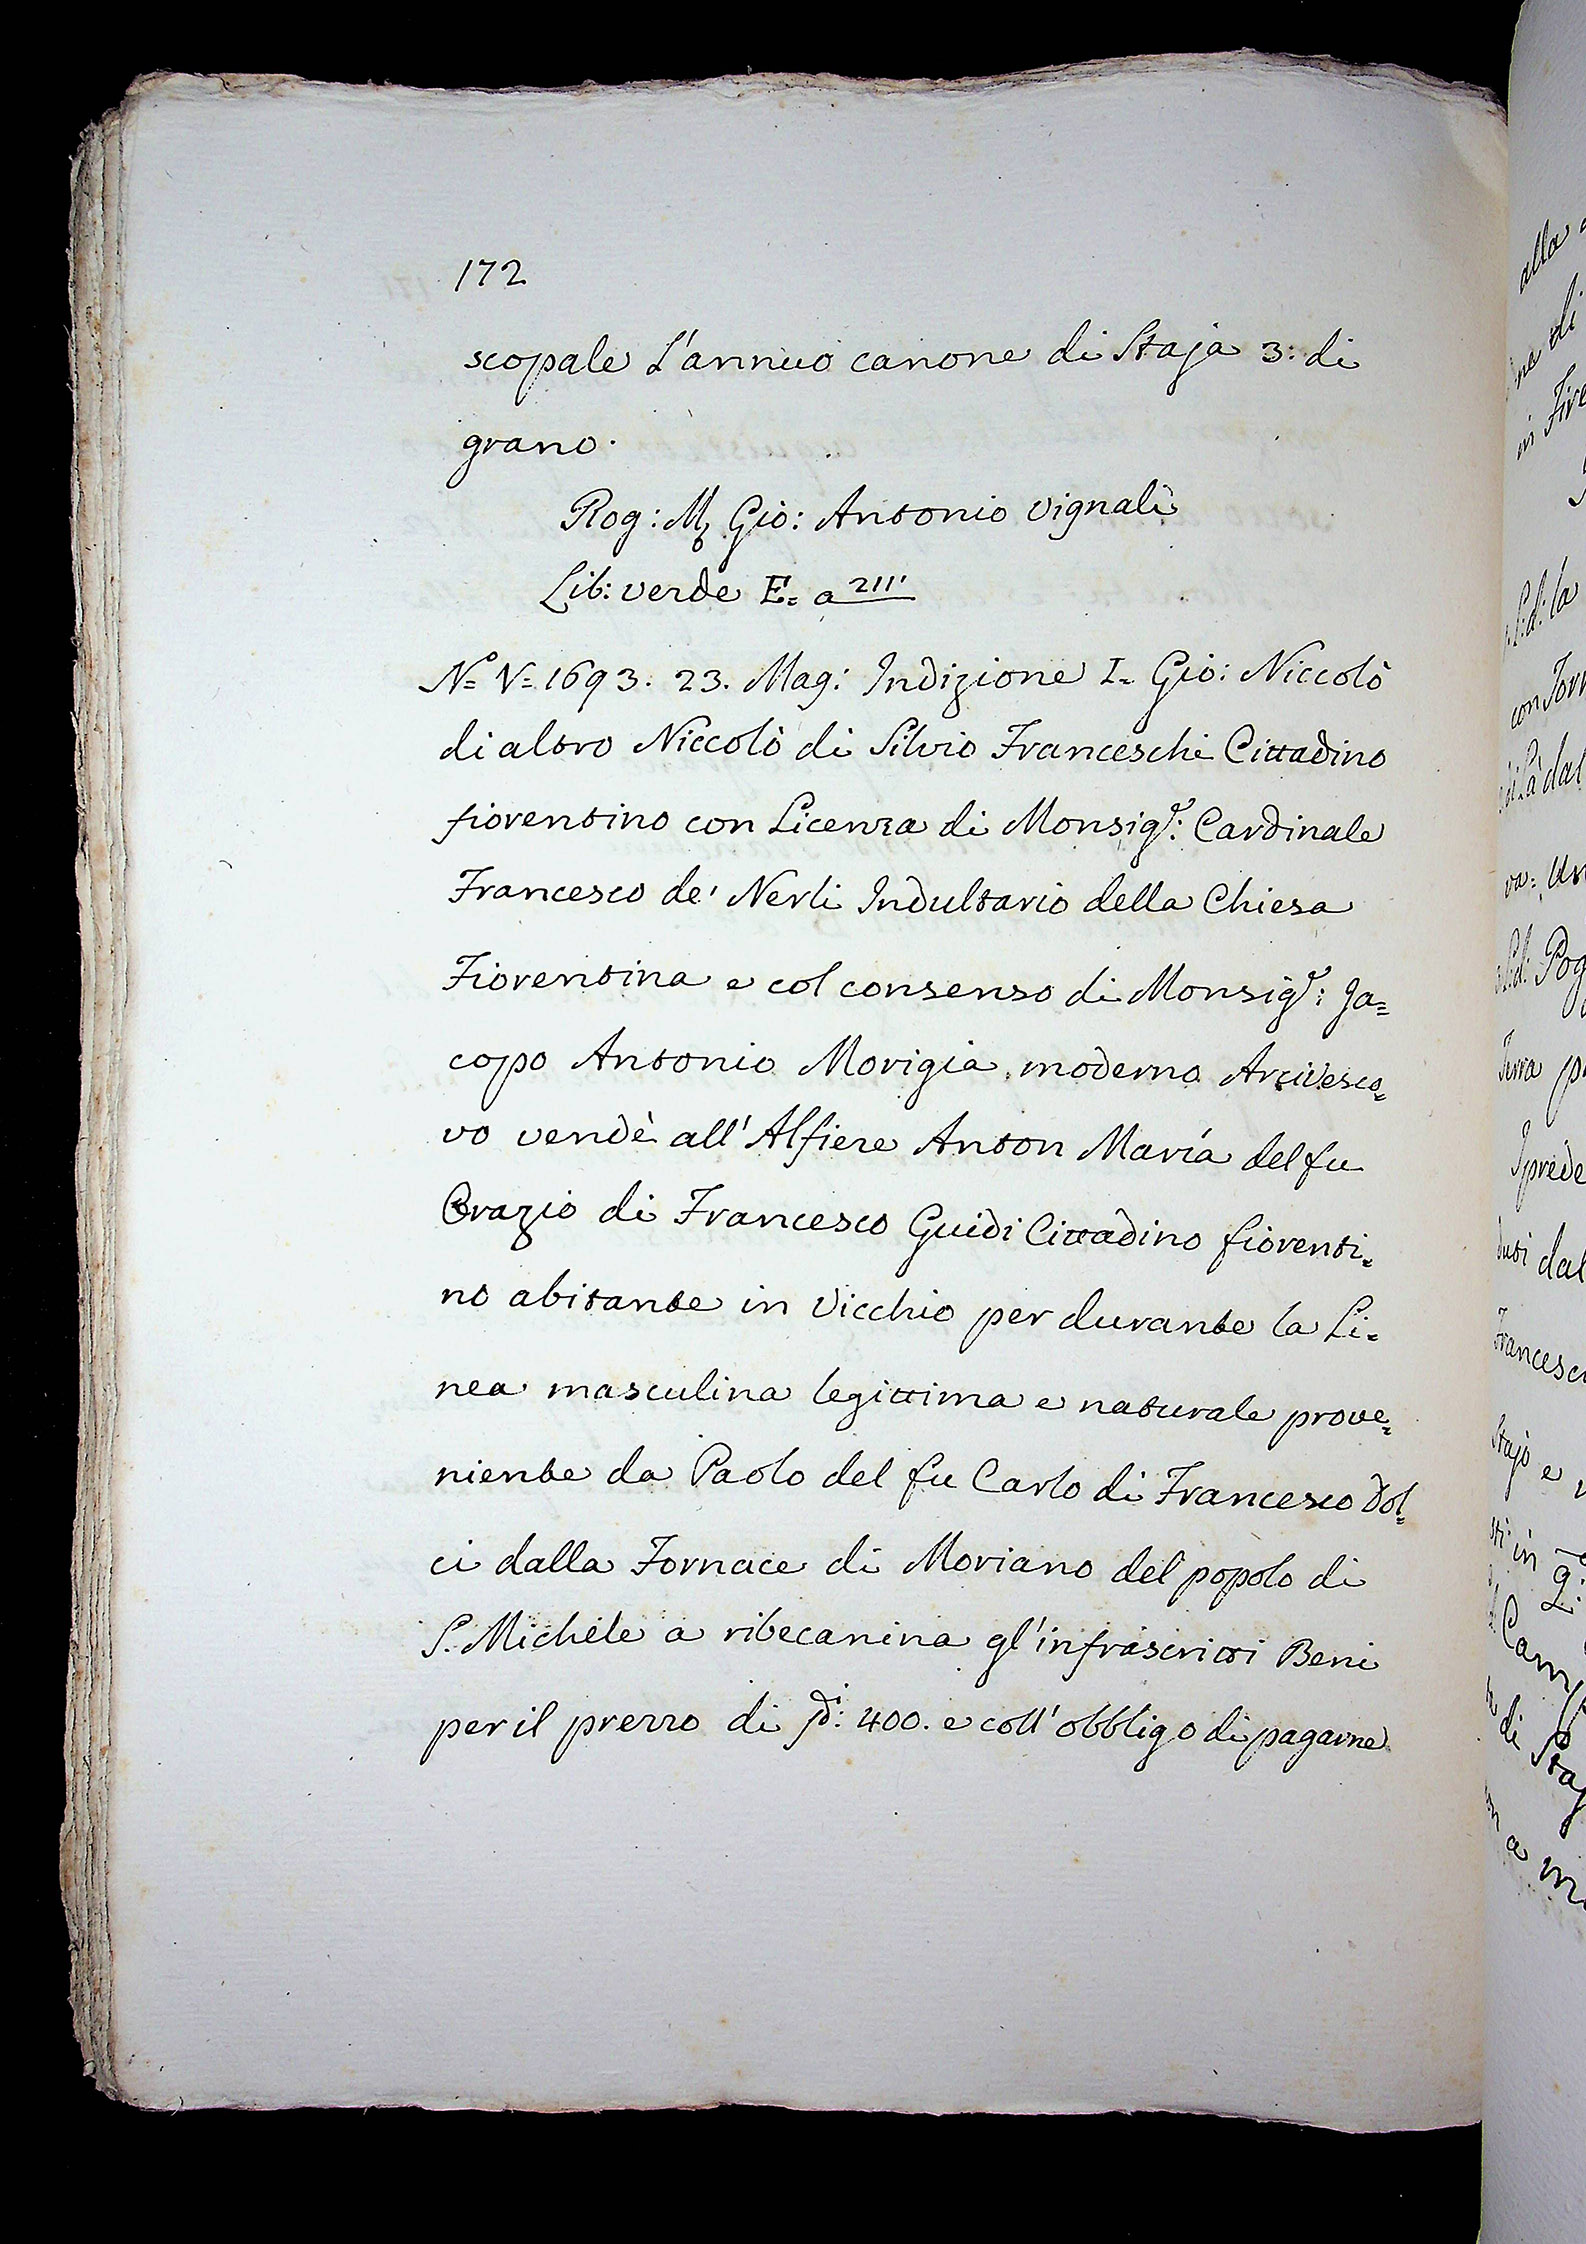 172
scopale L'annuo canone di Staja 3: di
grano.
Rog: M. Gio: Antonio Vignali
Lib: verde E= a 211'
N.º V= 1693. 23. Mag: Indizione I= Gio: Niccolò
di altro Niccolò di Silvio Franceschi Cittadino
fiorentino con Licenza di Monsig.r: Cardinale
Francesco de' Nerli Indultario della Chiesa
Fiorentina e col consenso di Monsig.r: Ja=
copo Antonio Morigia moderno Arcivesco=
vo vendè all'Alfiere Anton Maria del fu
Orazio di Francesco Guidi Cittadino fiorenti=
no abitante in Vicchio per durante la Li=
nea masculina legittima e naturale prove=
niente da Paolo del fu Carlo di Francesco Dol=
ci dalla Fornace di Moriano del popolo di
S. Michele a ribecanina gl'infrascritti Beni
per il prezzo di 400. e coll'obbligo di pagarne
alla
di
in Fire
la
con Torr
di Là dal
va:
Pog
Terra
dal
Francesc
Stajo e
in
Cam
di Staj
a